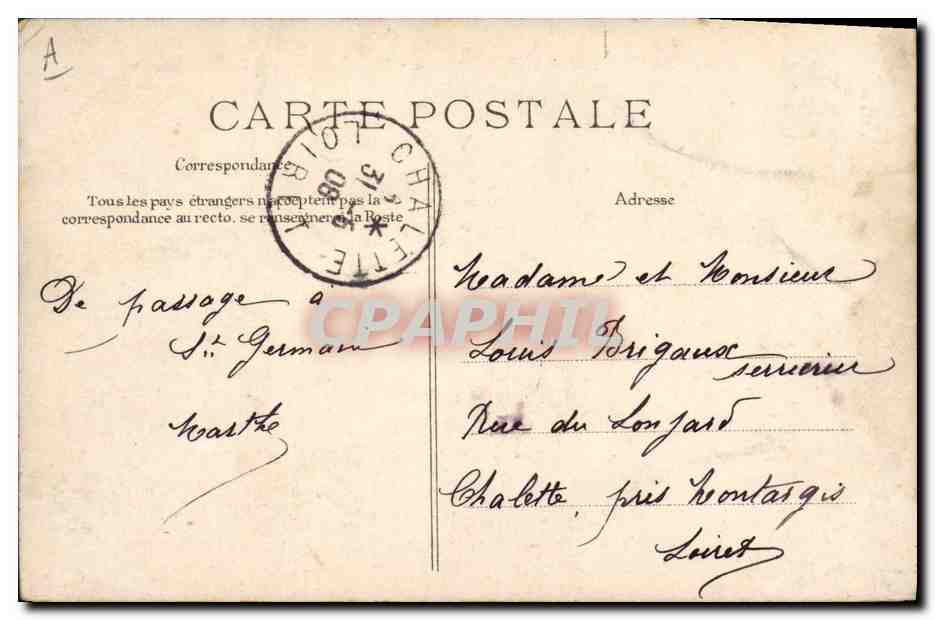 A
CARTE POSTALE
Correspondance
Tous les pays étrangers n'acceptent pas la
correspondance au recto. se renseigner à la Poste
Adresse
CHALETTE
LOIRET
31
08
De passage à
St Germain
Marthe
Madame et Monsieur
Louis Brigaux
serrurier
Rue du
Chalette, près Montargis
Loiret
CPAPHIL